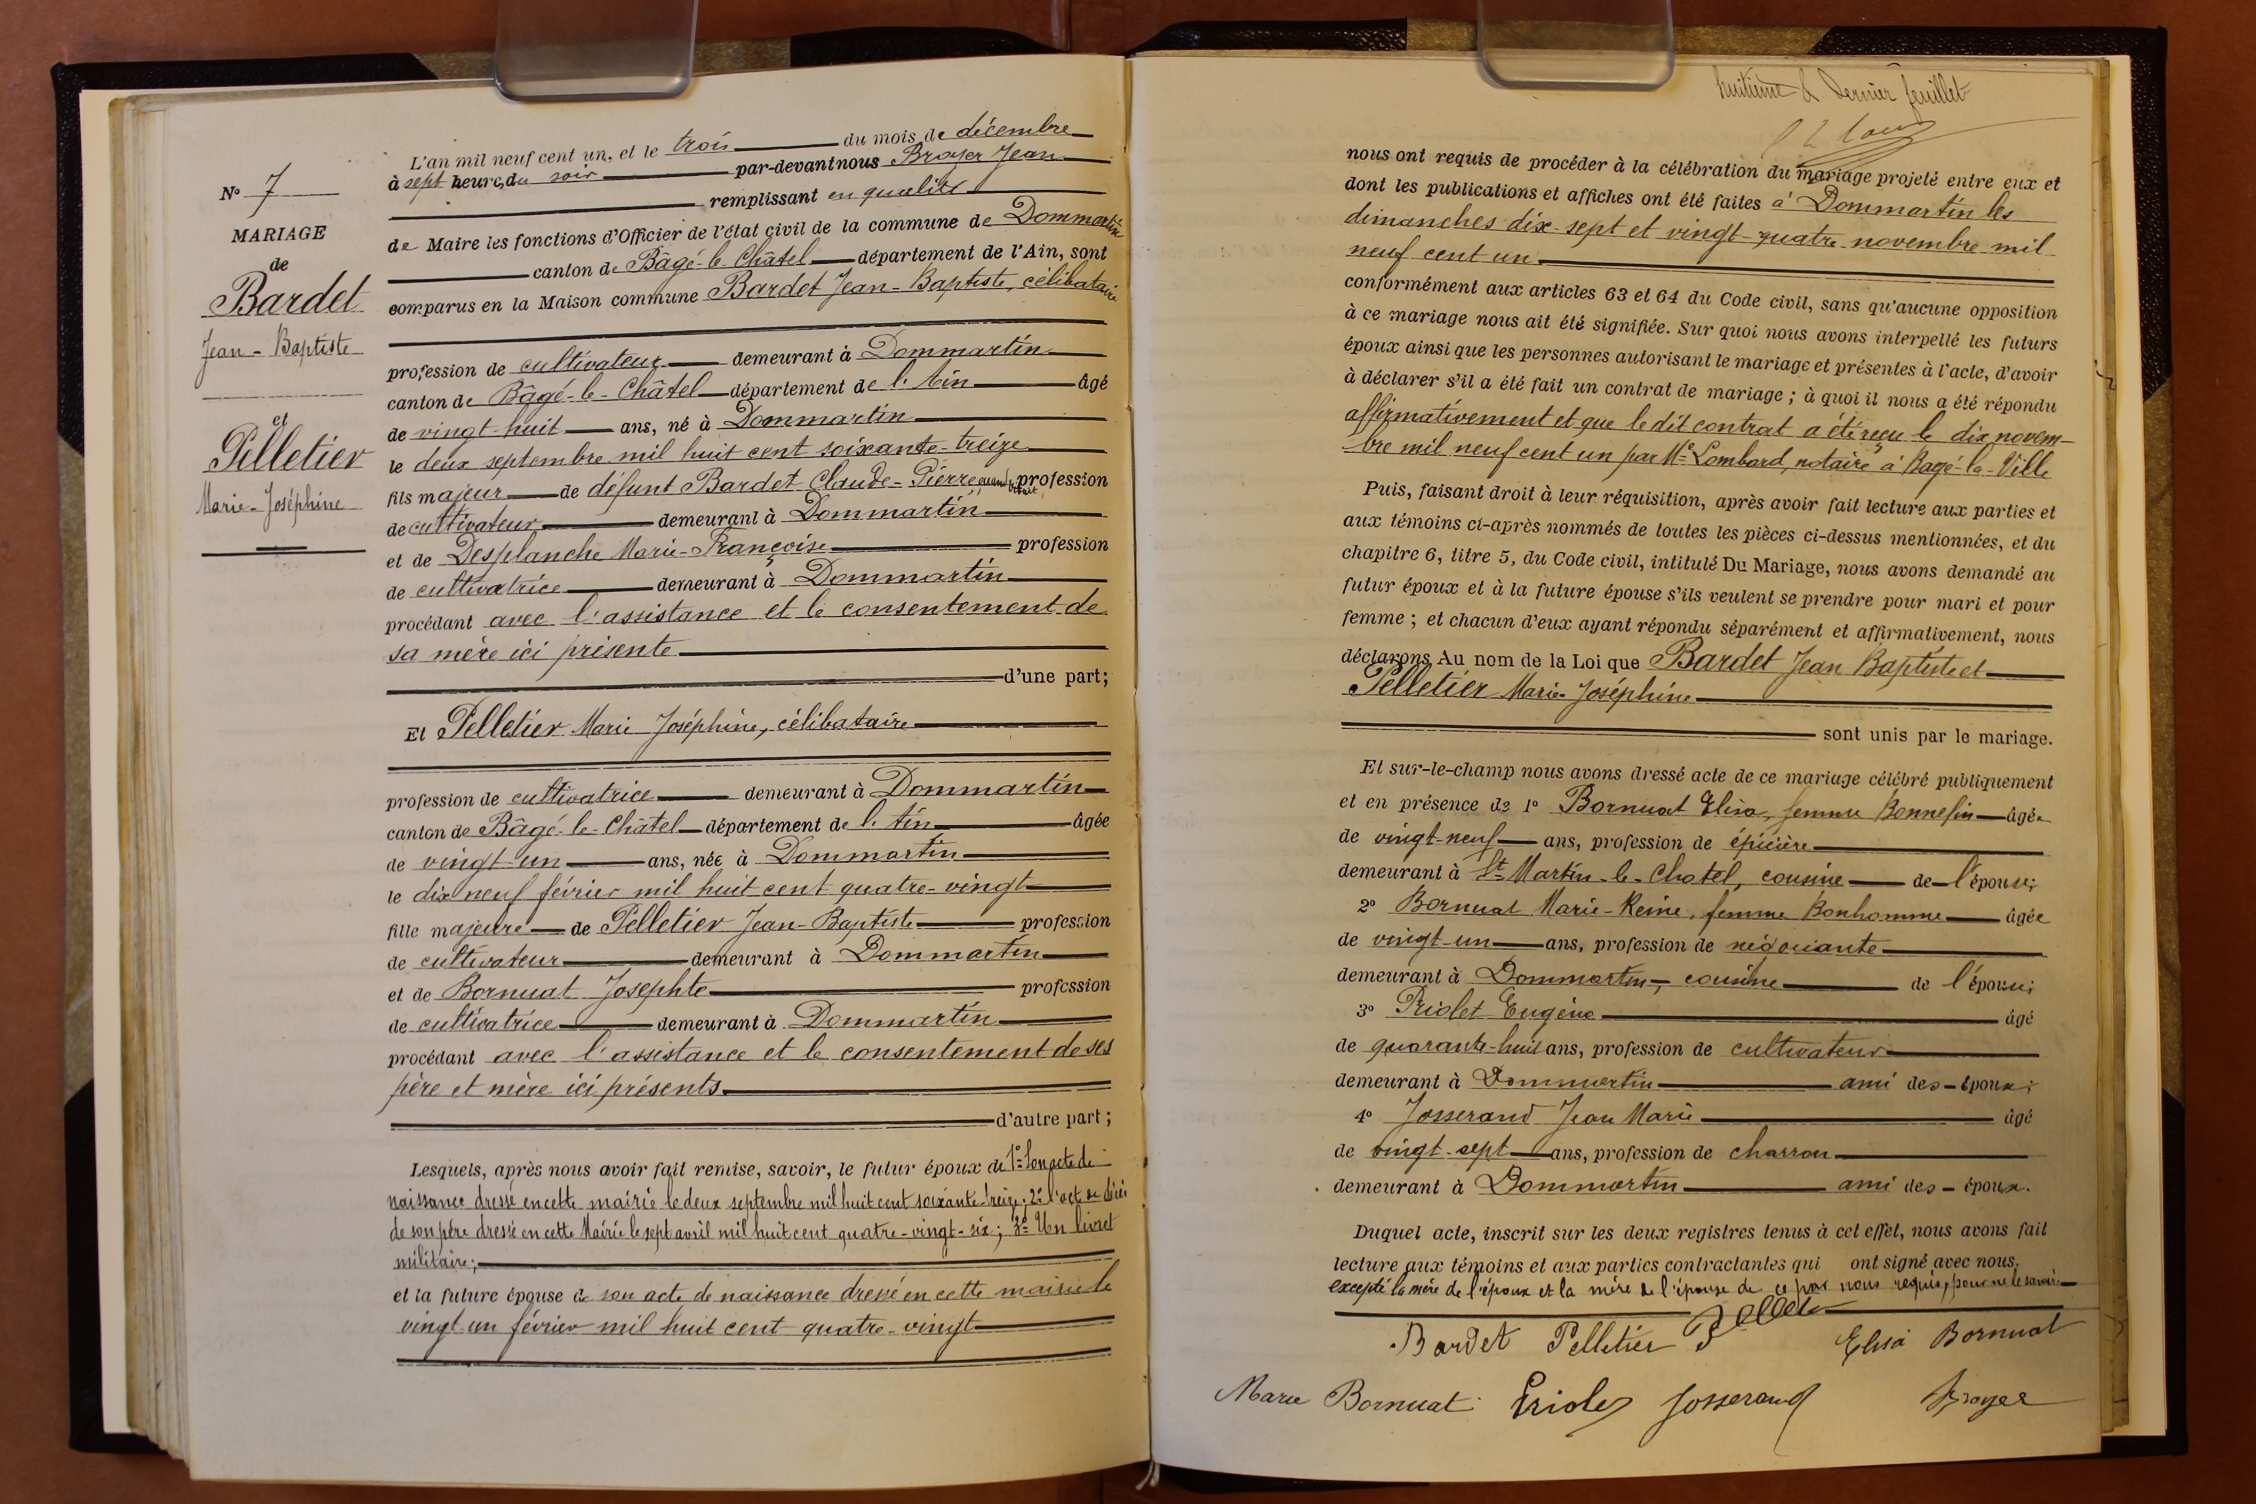 N° 7
MARIAGE
de
Bardet
Jean-Baptiste
et
Pelletier
Marie-Joséphine
L'an mil neuf cent un, et le trois du mois de décembre
à sept heures du soir par-devant nous Broyer Jean
remplissant en qualité
de Maire les fonctions d'Officier de l'état civil de la commune de Dommartin
canton de Bâgé-le-Châtel département de l'Ain, sont
comparus en la Maison commune Bardet Jean-Baptiste, célibataire
profession de cultivateur demeurant à Dommartin
canton de Bâgé-le-Châtel département de l'Ain âgé
de vingt-huit ans, né à Dommartin
le deux septembre mil huit cent soixante-treize
fils majeur de défunt Bardet Claude-Pierre, quand vivait profession
de cultivateur demeurant à Dommartin
et de Desplanche Marie-Françoise profession
de cultivatrice demeurant à Dommartin
procédant avec l'assistance et le consentement de
sa mère ici présente
d'une part;
Et Pelletier Marie Joséphine, célibataire
profession de cultivatrice demeurant à Dommartin
canton de Bâgé-le-Châtel département de l'Ain âgée
de vingt-un ans, née à Dommartin
le dix neuf février mil huit cent quatre-vingt
fille majeure de Pelletier Jean-Baptiste profession
de cultivateur demeurant à Dommartin
et de Bornuat Josephte profession
de cultivatrice demeurant à Dommartin
procédant avec l'assistance et le consentement de ses
père et mère ici présents
d'autre part;
Lesquels, après nous avoir fait remise, savoir, le futur époux de 1° Son acte de
naissance dressé en cette mairie le deux septembre mil huit cent soixante-treize; 2° l'acte de décès
de son père dressé en cette Mairie le sept avril mil huit cent quatre-vingt-six; 3° Un livret
militaire;
et la future épouse de son acte de naissance dressé en cette mairie le
vingt-un février mil huit cent quatre-vingt
huitième & dernier feuillet
nous ont requis de procéder à la célébration du mariage projeté entre eux et
dont les publications et affiches ont été faites à Dommartin les
dimanches dix-sept et vingt-quatre novembre mil
neuf cent un
conformément aux articles 63 et 64 du Code civil, sans qu'aucune opposition
à ce mariage nous ait été signifiée. Sur quoi nous avons interpellé les futurs
époux ainsi que les personnes autorisant le mariage et présentes à l'acte, d'avoir
à déclarer s'il a été fait un contrat de mariage; à quoi il nous a été répondu
affirmativement et que le dit contrat a été reçu le dix novem-
bre mil neuf cent un par Me Lombard, notaire à Bagé-la-Ville
Puis, faisant droit à leur réquisition, après avoir fait lecture aux parties et
aux témoins ci-après nommés de toutes les pièces ci-dessus mentionnées, et du
chapitre 6, titre 5, du Code civil, intitulé Du Mariage, nous avons demandé au
futur époux et à la future épouse s'ils veulent se prendre pour mari et pour
femme; et chacun d'eux ayant répondu séparément et affirmativement, nous
déclarons Au nom de la Loi que Bardet Jean Baptiste et
Pelletier Marie-Joséphine
sont unis par le mariage.
Et sur-le-champ nous avons dressé acte de ce mariage célébré publiquement
et en présence de 1° Bornuat Elisa, femme Bonnefin âgée
de vingt-neuf ans, profession de épicière
demeurant à St Martin-le-Chatel, cousine de l'épouse;
2° Bornuat Marie-Reine, femme Bonhomme âgée
de vingt-un ans, profession de négociante
demeurant à Dommartin, cousine de l'épouse;
3° Priolet Eugène âgé
de quarante-huit ans, profession de cultivateur
demeurant à Dommartin ami des époux;
4° Josserand Jean Marie âgé
de vingt-sept ans, profession de charron
demeurant à Dommartin ami des époux.
Duquel acte, inscrit sur les deux registres tenus à cet effet, nous avons fait
lecture aux témoins et aux parties contractantes qui ont signé avec nous,
excepté la mère de l'époux et la mère de l'épouse de ce par nous requis, pour ne le savoir
Bardet Pelletier Pelletier Elisa Bornuat
Marie Bornuat Priolet Josserand Broyer